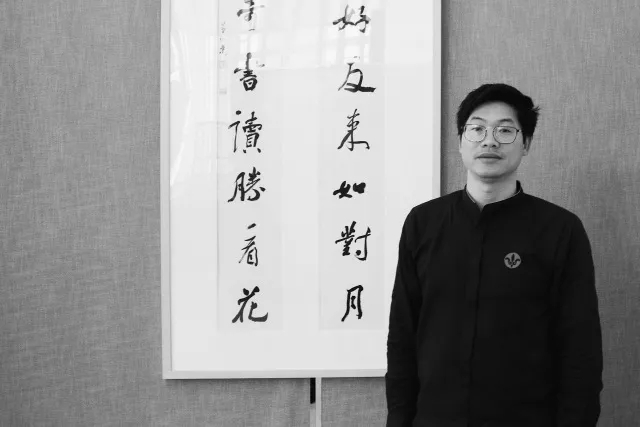 好友来如對月
奇書讀勝看花